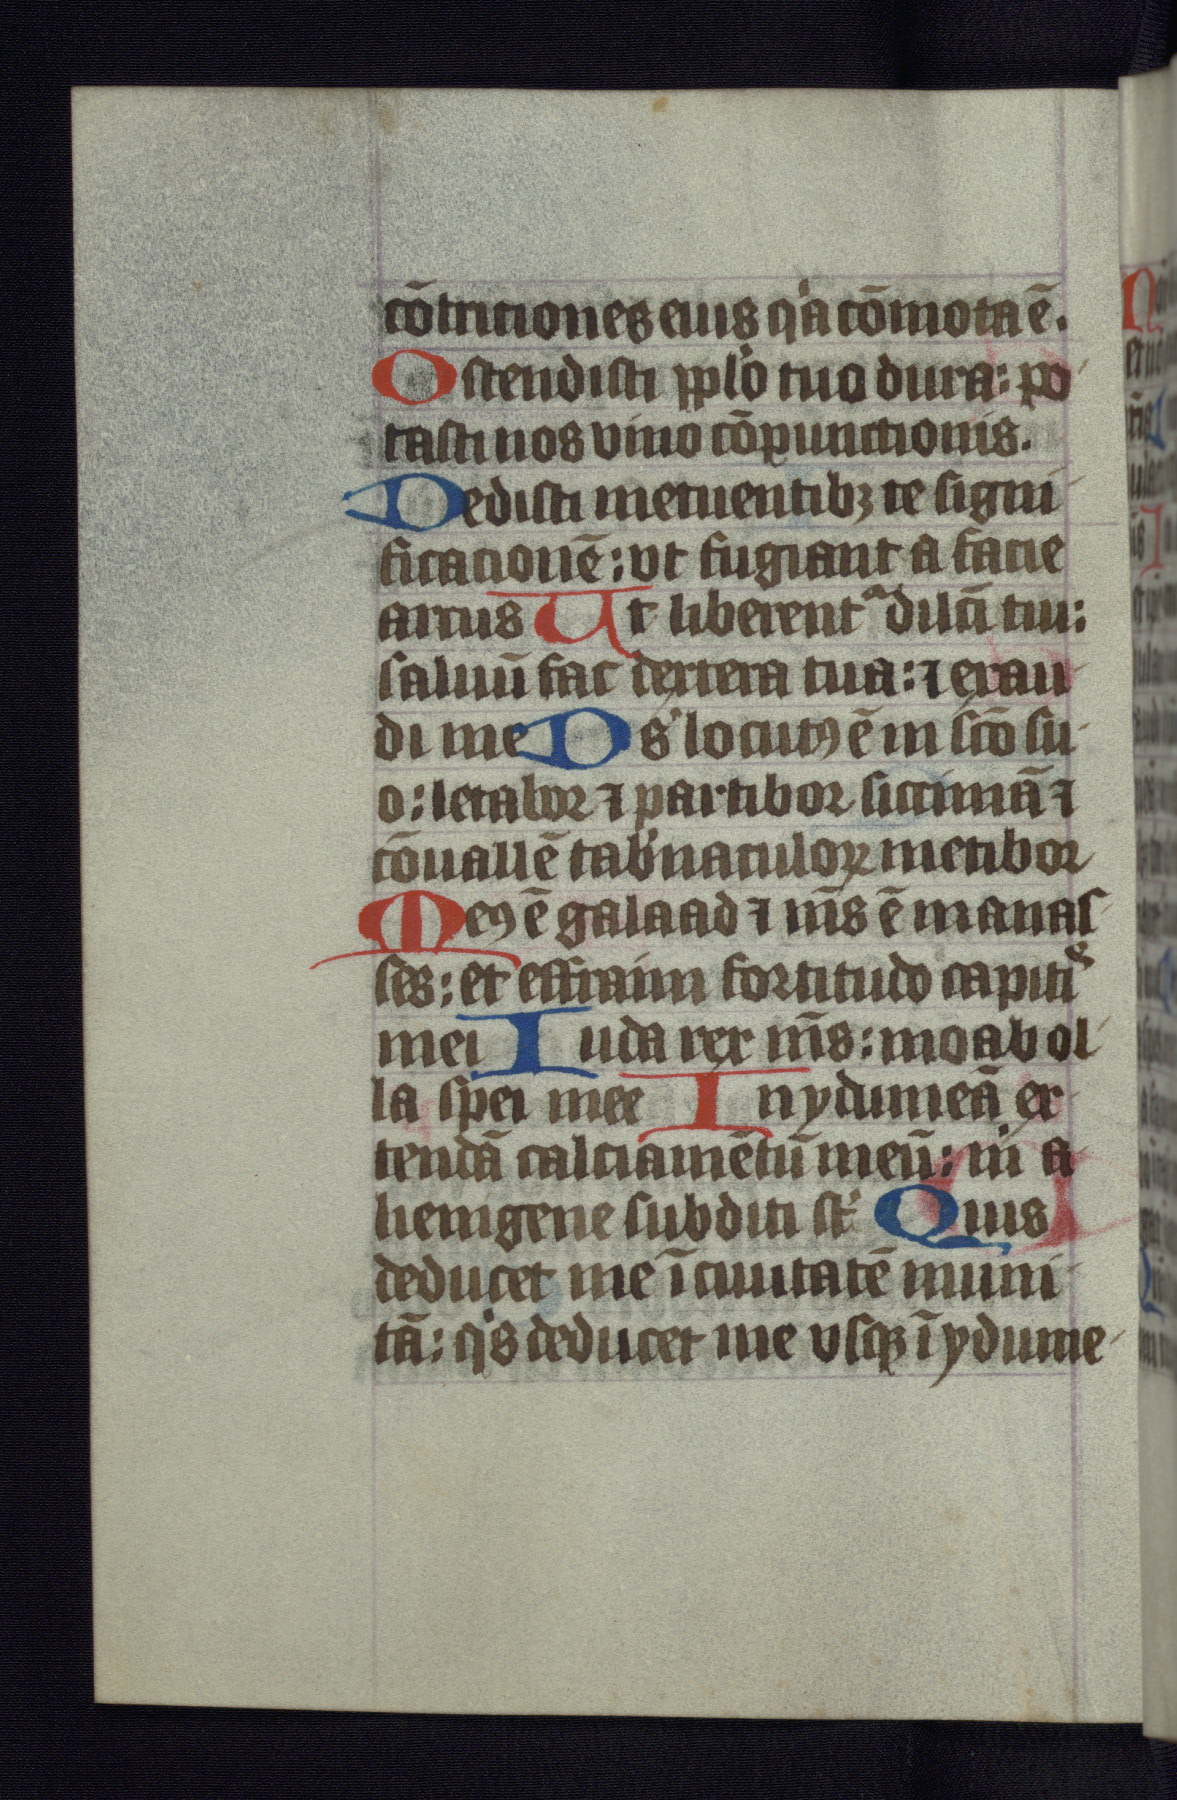 cōtritiones eius qͥa cōmota ē.
Ostendisti pplo̓ tuo dura: po
tasti nos vino cōpunctionis.
Dedisti metuentibꝫ te signi
ficationē: vt fugiant a facie
arcus Ut liberentᷓ dilcī tui:
saluū fac dextera tua: ⁊ exau
di me Ds̓ locutꝰ ē in scō su
o: letabor ⁊ partibor siccimā ⁊
cōuallē tab̓naculoꝝ metibor
Meꝰ ē galaad ⁊ m̄s ē manas
ses: et effraim fortitudo capitis
mei Iuda rex m̄s: moab ol
la spei mee In ydumeā ex
tendā calciamētū meū: m̓ a
lienigene subditi st̓ Quis
deducet me ī ciuitatē muni
tā: qͥs deducet me vsqꝫ ī ydume